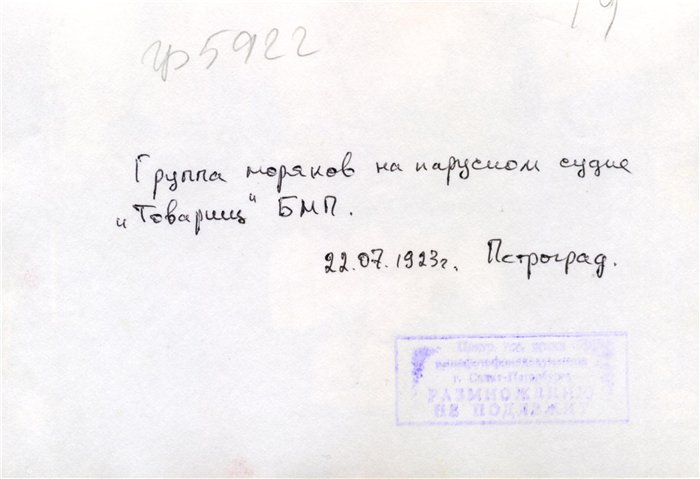 гр 5922
19
Группа моряков на парусном судне
"Товарищ" БМП.
22.07.1923г. Петроград.
г. Санкт-Петербурга
РАЗМНОЖЕНИЮ
НЕ ПОДЛЕЖИТ